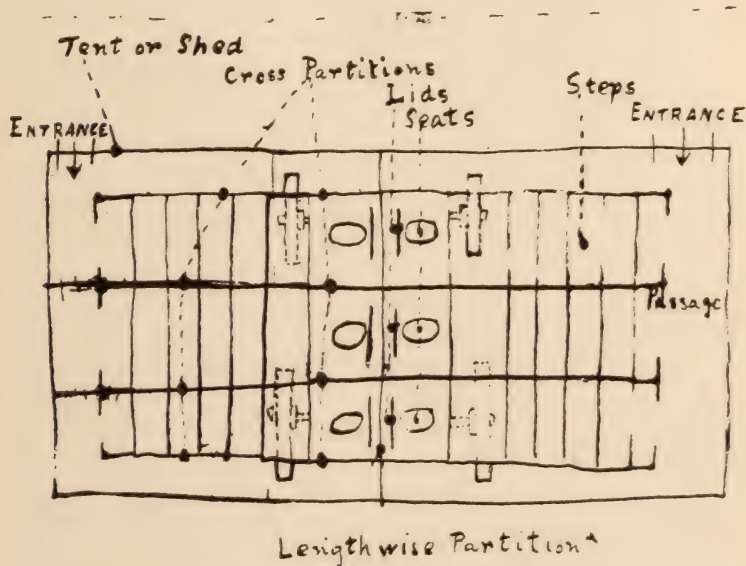 Tent or Shed
Cross Partitions
Lids
Seats
Steps
ENTRANCE
ENTRANCE
Passage
Lengthwise Partition